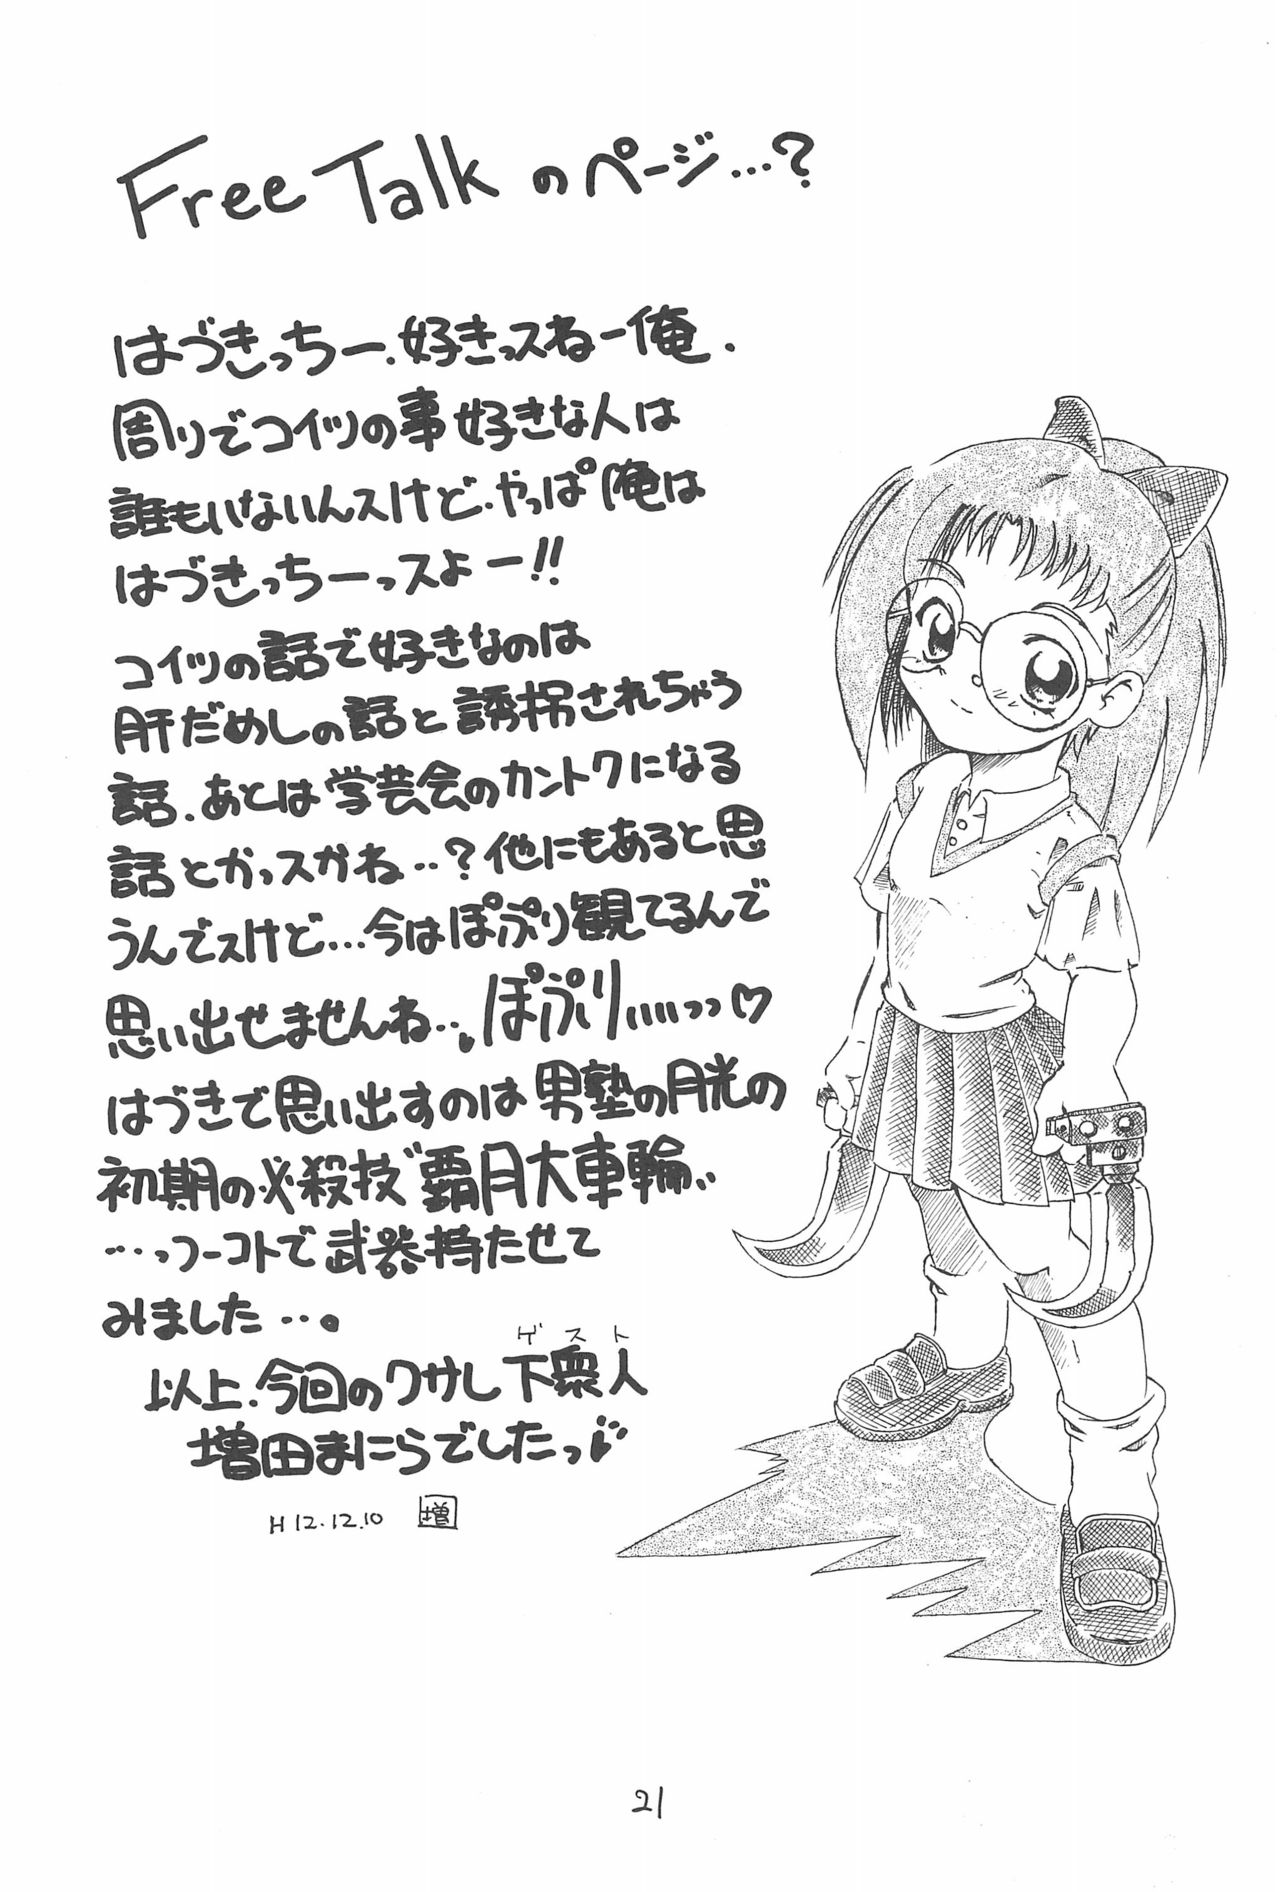 Free Talk のページ…?
はづきっちー.好きっスねー俺.
周りでコイツの事好きな人は
誰もいないんスけど.やっぱ俺は
はづきっちーっスよー!!
コイツの話で好きなのは
肝だめしの話と誘拐されちゃう
話.あとは学芸会のカントクになる
話とかっスかね‥?他にもあると思
うんでスけど…今はぽぷり観てるんで
思い出せませんね…ぽぷりぃぃぃっっ♡
はづきで思い出すのは男塾の月光の
初期の必殺技〝覇月大車輪〟
…っつーコトで武器持たせて
みました…。
ゲスト
以上.今回のクサレ下衆人
増田まにらでしたっ
H12.12.10 増
21